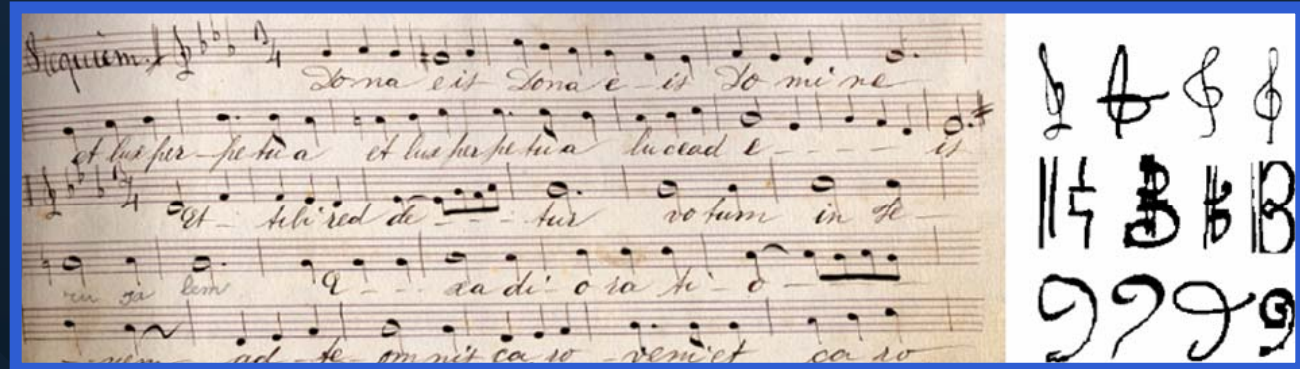 Requiem.
Dona eis Dona e - is Do mi ne
et lux per - petua et lux perpetua lucead e - - - - - is
Et - tibi red de - - - tur votum in Je -
ru sa lem E - - - xa di - o ra ti - o -
- nem - ad - te - omnis ca ro - veniet ca ro